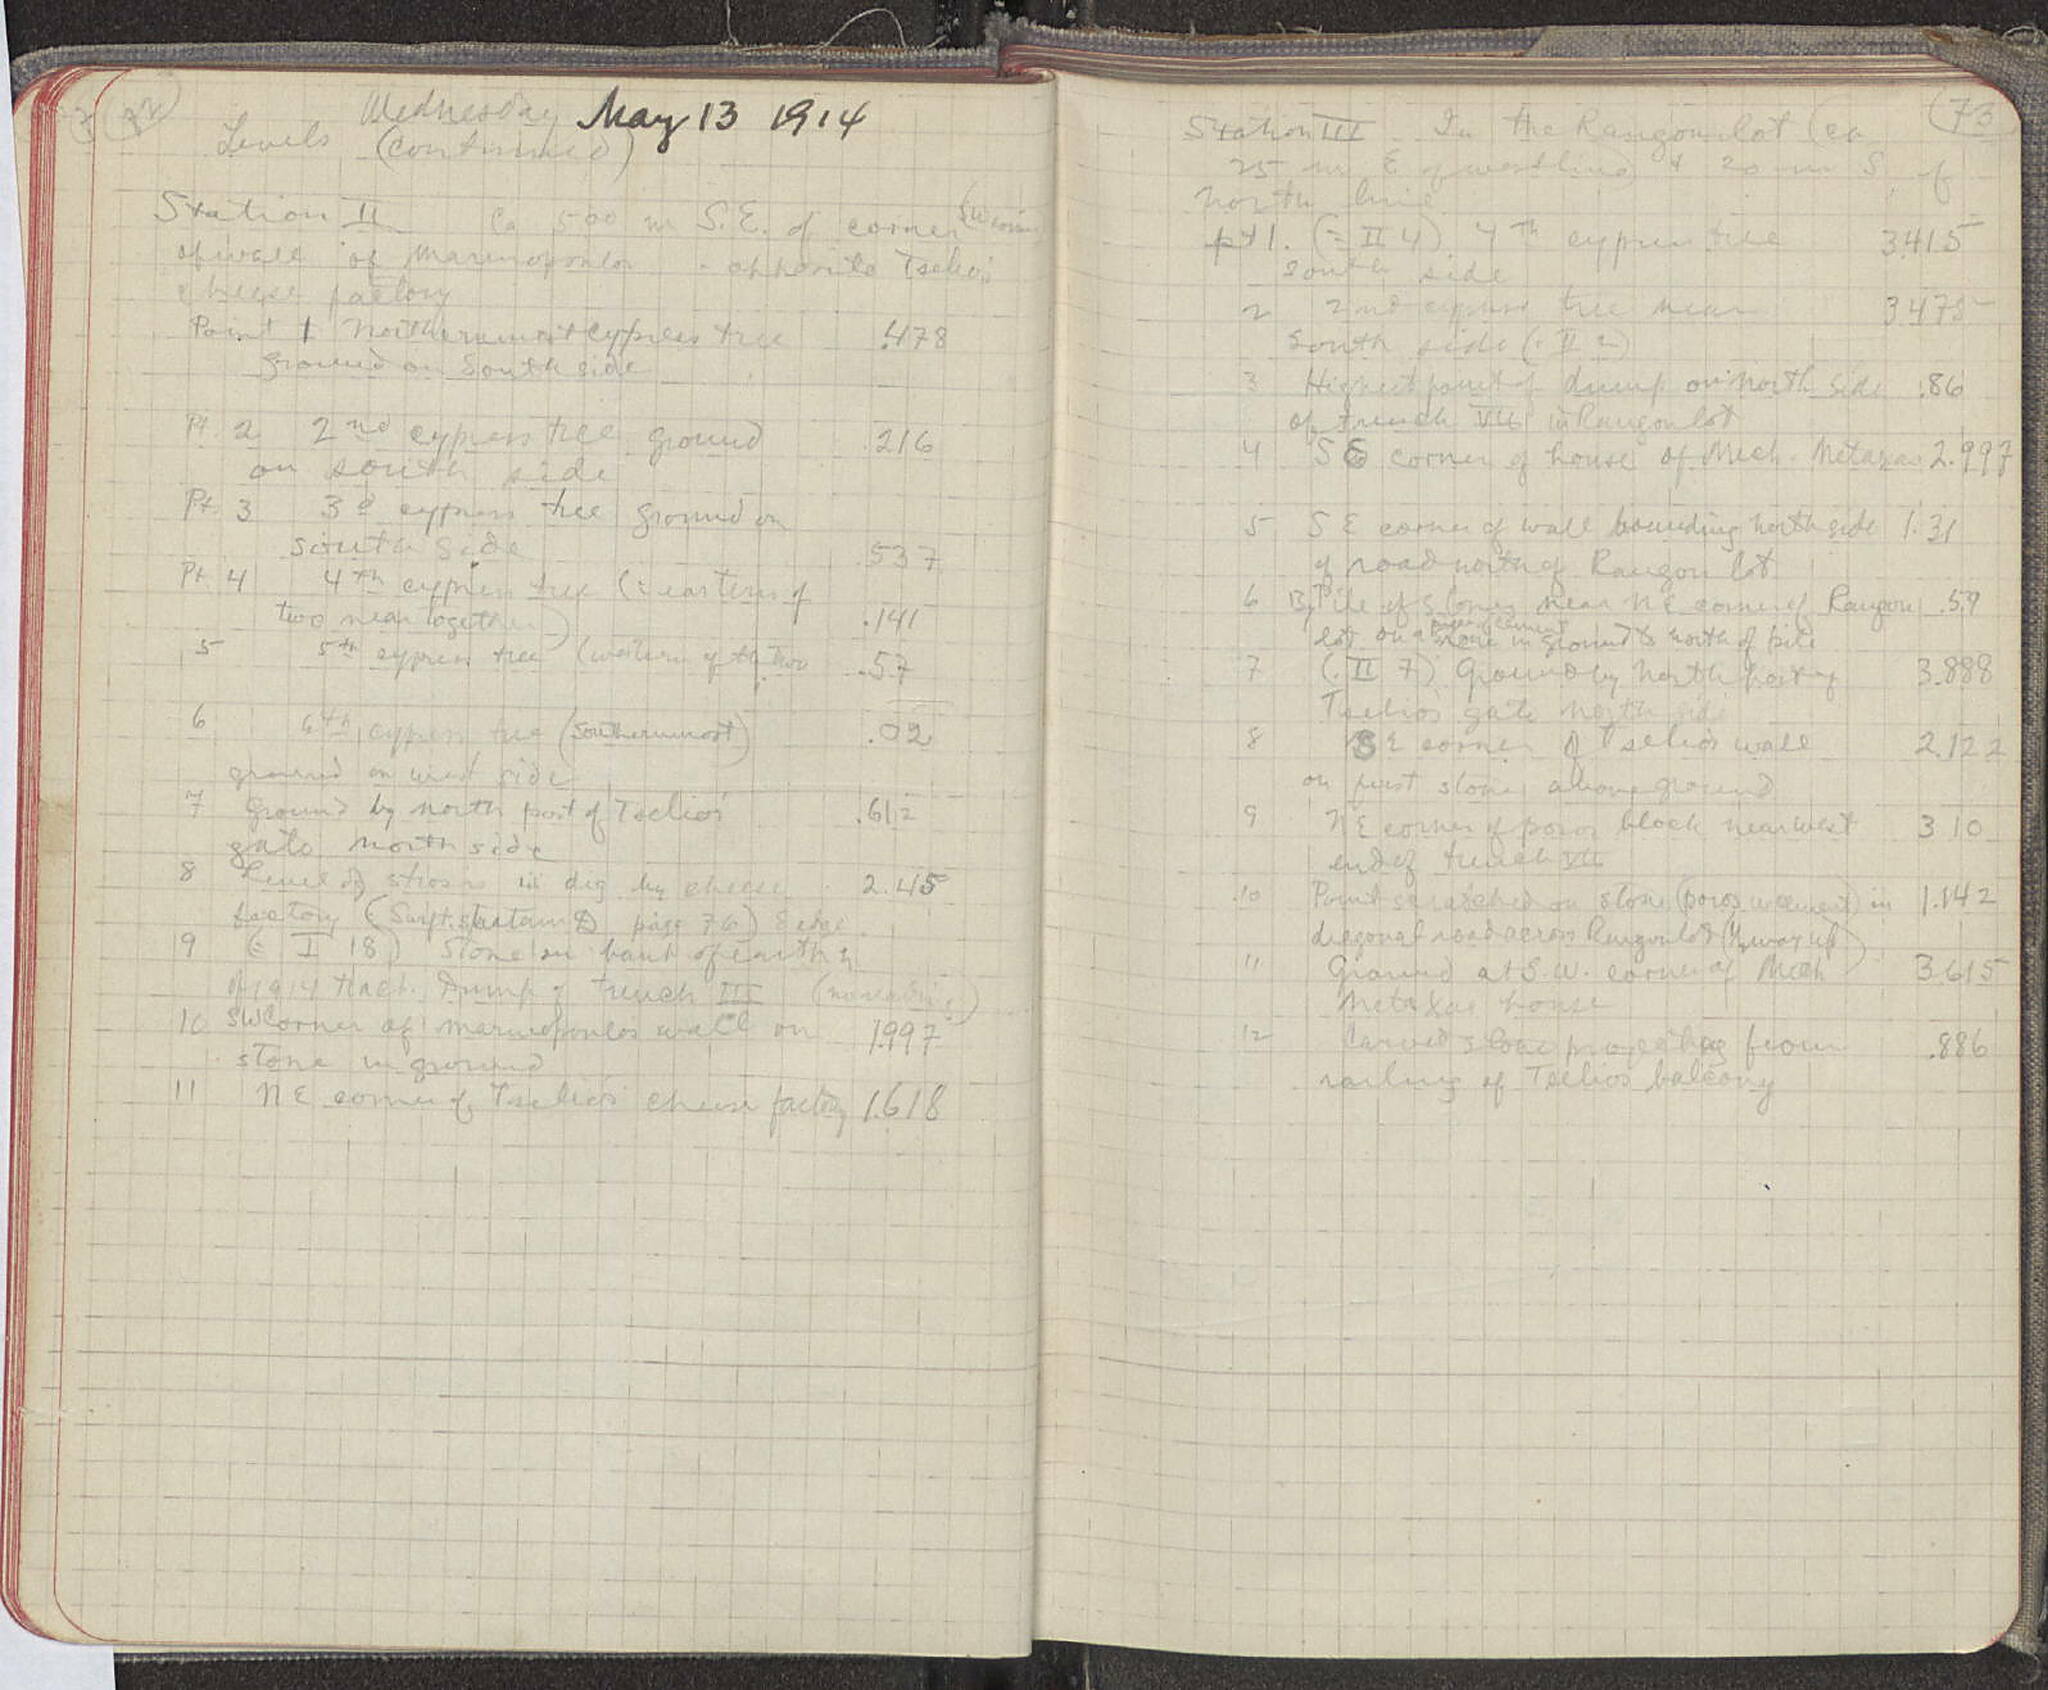 Wednesday May 13 1914
Levels (continued)
Station II Ca 500 m S.E. of corner (SW corner
of wall of Marinopoulos - opposite Tselios'
cheese factory
Point 1 Northernmost cypress tree .478
ground on South side
Pt. 2 2nd cypress tree ground .216
on south side
Pt. 3 3d cypress tree ground on
south side .537
Pt. 4 4th cypress tree (= eastern of
two near together) .141
5 5th cypress tree (western of the two .57
6 6th cypress tree (Southernmost) .02
ground on west side
7 Ground by north post of Tselios' .612
gate north side
8 Level of strosis in dig by cheese 2.45
factory (Swift. page 76) E edge
9 (= I 18) Stone in bank of earth
of 1914 tract. Dump of trench III
10 SW corner of Marinopoulos wall on 1.997
stone in ground
11 NE corner of Tselios' cheese factory 1.618
73
Station III In the Rangon lot (ca
25 m E of west line) & 20 m S. of
north line
pt 1. (= II 4) 4th cypress tree 3.415
south side
2 2nd cypress tree near 3.475
south side (= II 2)
3 Highest point of dump on north side .86
of trench VII in Rangon lot
4 SE corner of house of Mech. Metaxas 2.997
5 SE corner of wall bounding north side 1.31
of road north of Rangon lot
6 By Pile of Stones near NE corner of Rangon .59
lot on a piece of cement in ground to north of pile
7 (= II 7) Ground by North post of 3.888
Tselios gate north side
8 SE corner of Tselios wall 2.122
on first stone above ground
9 NE corner of poros block near west 3 10
end of trench VII
10 Point scratched on stone (poros w cement) in 1.142
diagonal road across Rangon lot (½ way up)
11 Ground at S.W. corner of Mech 3.615
Metaxas house
12 Carved stone projecting from .886
railing of Tselios balcony